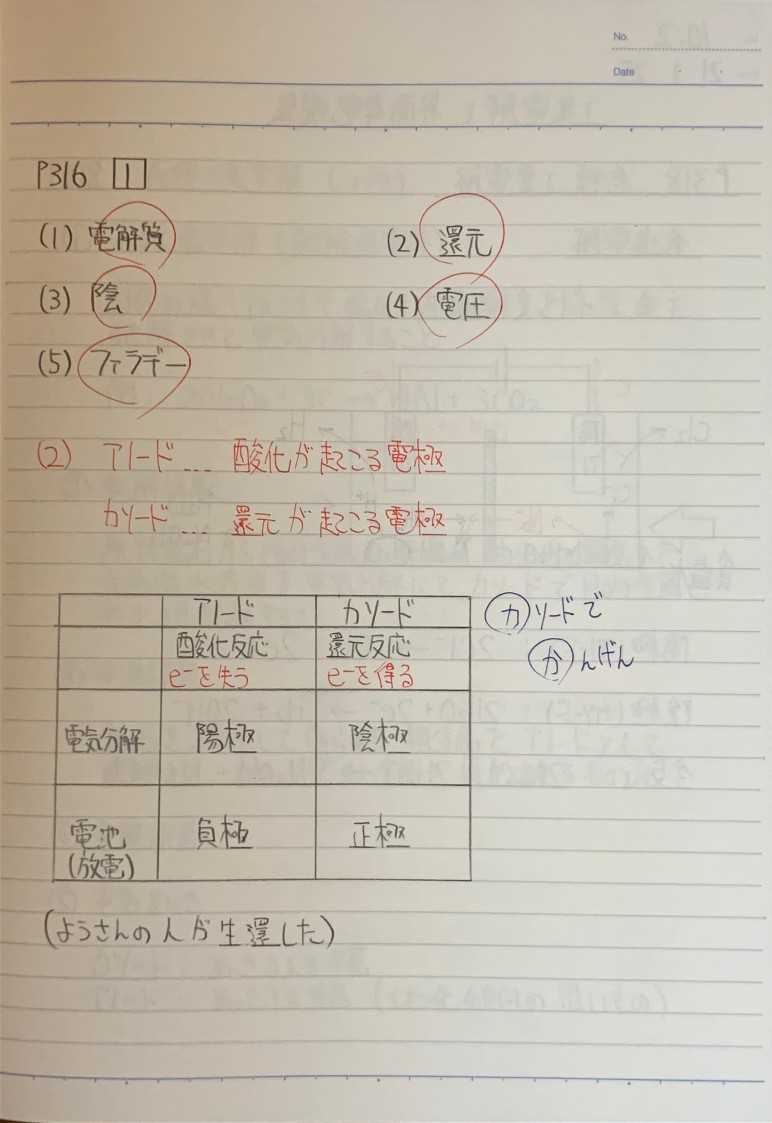 No.
Date
P316 1
(1) 電解質 (2) 還元
(3) 陰 (4) 電圧
(5) ファラデー
(2) アノード… 酸化が起こる電極
カソード… 還元が起こる電極
アノード カソード
酸化反応 還元反応
e⁻を失う e⁻を得る
電気分解 陽極 陰極
電池 負極 正極
(放電)
カソードで
かんげん
(ようさんの人が生還した)